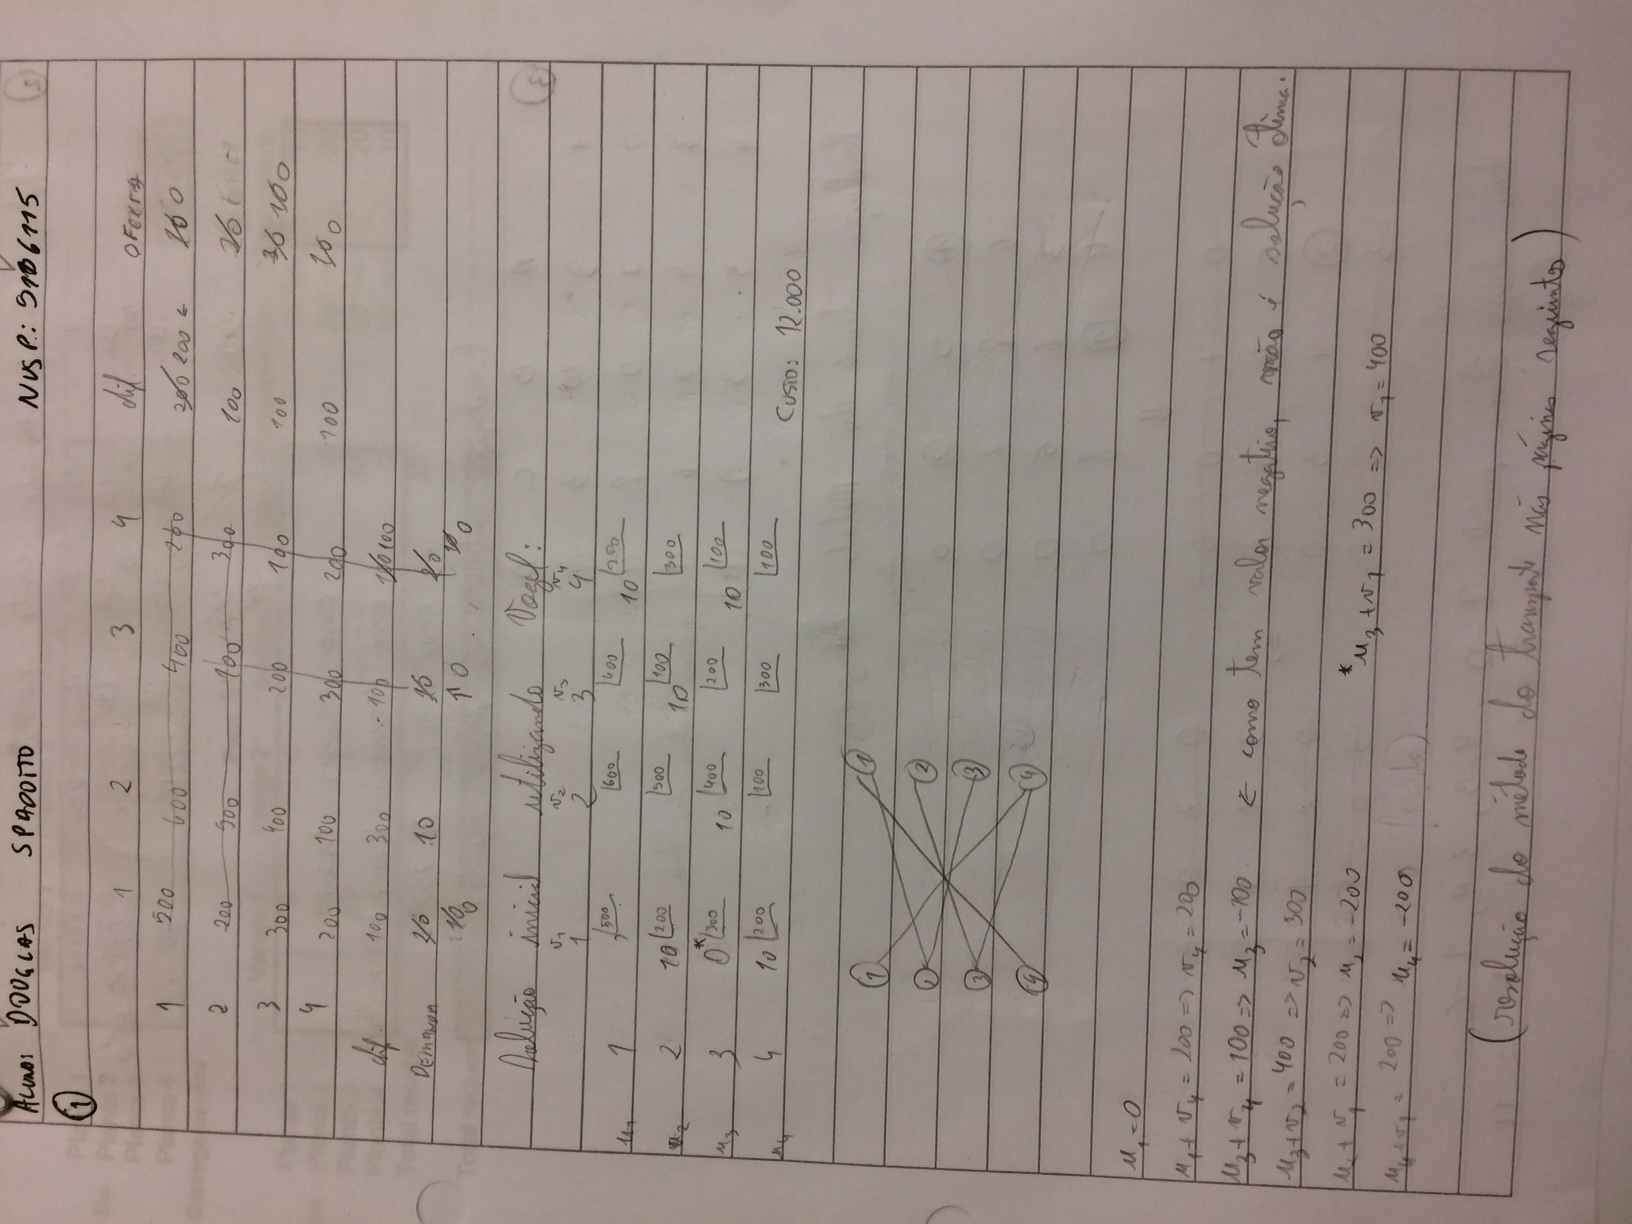 ALUNO: DOUGLAS SPADOTTO NUSP.: 9106115
1
1 2 3 4 dif. OFERTA
1 500 600 400 200 200 200 ← 10 0
2 200 900 100 300 100 20
3 300 400 200 100 100 20 10 0
4 200 100 300 200 100 10 0
dif. 100 300 100 100 100
DEMANDA 20 10 10 20
10 0 10 10 0
Solução inicial utilizando Vogel:
v1 v2 v3 v4
1 2 3 4
u1 1 500 600 400 10 200
u2 2 10 200 900 10 100 300
u3 3 0* 300 10 400 200 10 100
u4 4 10 200 100 300 100
Custo: 12.000
1 1
2
3 3
4 4
u1 = 0
u1 + v4 = 200 => v4 = 200
u3 + v4 = 100 => u3 = -100 ← como tem valor negativo, não é solução ótima.
u3 + v2 = 400 => v2 = 500
u2 + v1 = 200 => u2 = -200 *u3 + v1 = 300 => v1 = 400
u4 + v1 = 200 => u4 = -200
(resolução do método do transporte nas páginas seguintes)